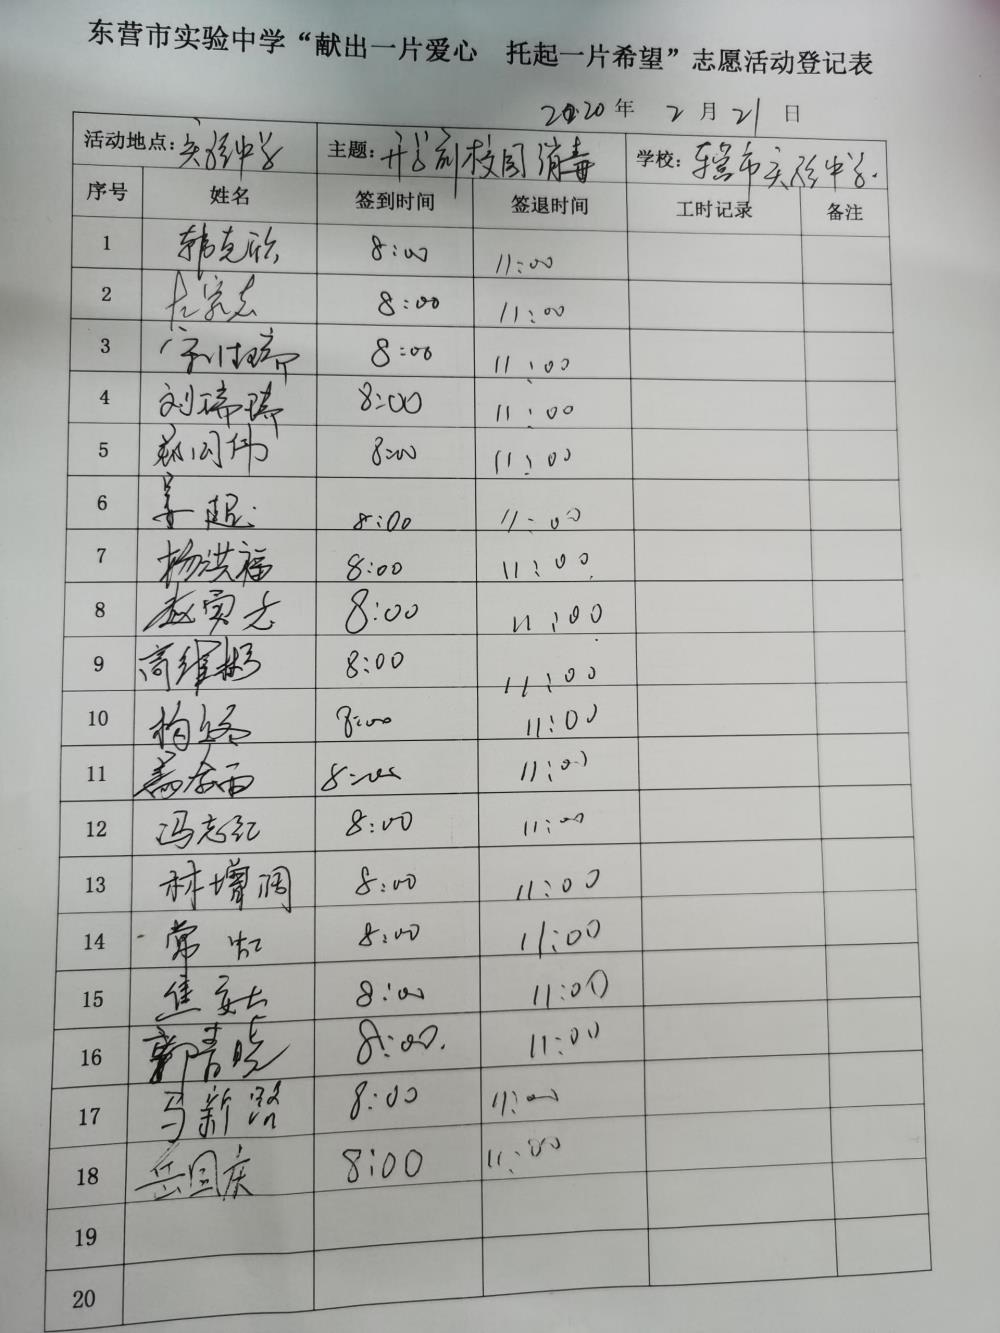 东营市实验中学“献出一片爱心 托起一片希望”志愿活动登记表
2020年 2月21日
活动地点：实验中学 主题：开学前校园消毒 学校：东营市实验中学.
序号 姓名 签到时间 签退时间 工时记录 备注
1 韩克欣 8:00 11:00
2 8:00 11:00
3 8:00 11:00
4 刘瑞瑞 8:00 11:00
5 8:00 11:00
6 姜超 8:00 11:00
7 杨洪福 8:00 11:00
8 8:00 11:00
9 高维彬 8:00 11:00
10 8:00 11:00
11 8:00 11:00
12 冯志红 8:00 11:00
13 林增润 8:00 11:00
14 常虹 8:00 11:00
15 焦 8:00 11:00
16 郭青晓 8:00. 11:00
17 马新路 8:00 11:00
18 岳国庆 8:00 11:00
19
20